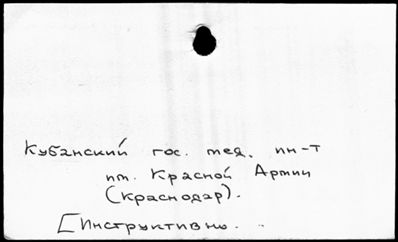 Кубанский гос. мед. ин-т
им. Красной Армии
(Краснодар).
[Инструктивно.